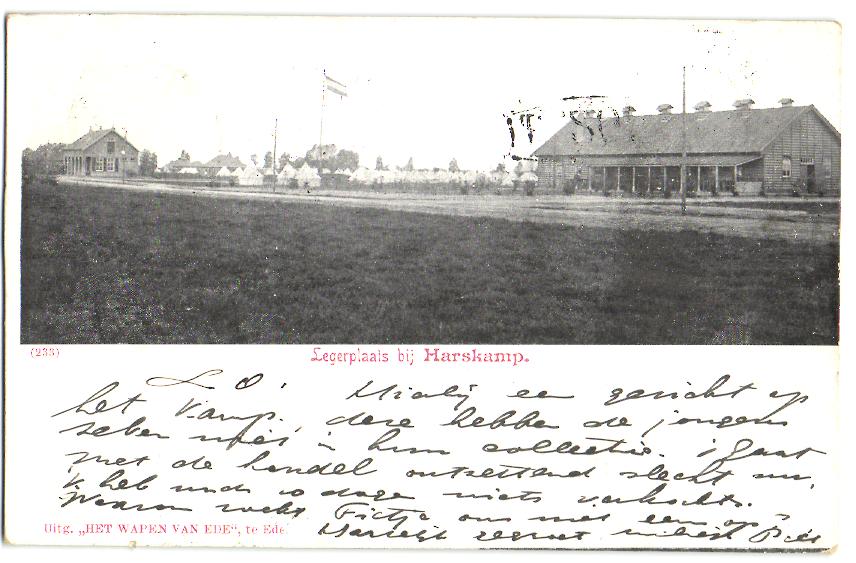 (233)
Legerplaats bij Harskamp.
L. O. Hierbij een gezicht op
het kamp, deze hebben de jongens
zeker niet in hun collectie. 't gaat
met de handel ontzettend slecht nu,
'k heb in 10 dagen niets verkocht.
Waarom zoekt Fietje ons niet een op?
Hartelijk gegroet
Uitg. „HET WAPEN VAN EDE“, te Ede.